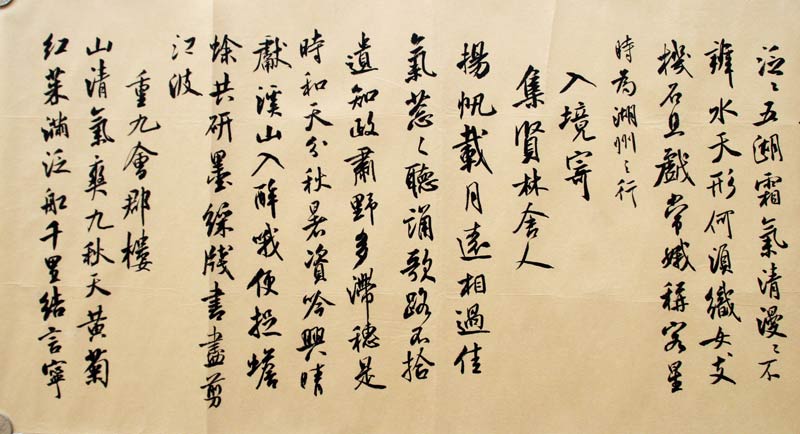 泛〻五湖霜氣清漫〻不
辨水天形何須織女支
機石且戲常娥稱客星
時為湖州之行
入境寄
集賢林舍人
揚帆載月遠相過佳
氣蔥〻聽誦歌路不拾
遺知政肅野多滯穗是
時和天分秋暑資吟興晴
獻溪山入醉哦便捉蟾
蜍共研墨綵牋書盡剪
江波
重九會郡樓
山清氣爽九秋天黃菊
紅茱滿泛船千里結言寧